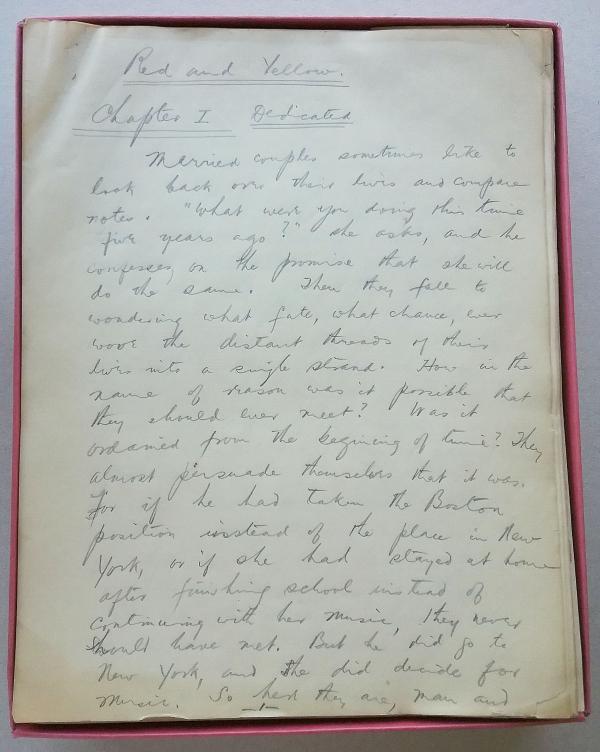 Red and Yellow.
Chapter I Dedicated
Married couples sometimes like to
look back over their lives and compare
notes. "What were you doing this time
five years ago?" she asks, and he
confesses, on the promise that she will
do the same. Then they fall to
wondering what fate, what chance, ever
wove the distant threads of their
lives into a single strand. How in the
name of reason was it possible that
they should ever meet? Was it
ordained from the begining of time? They
almost persuade themselves that it was.
For if he had taken the Boston
position instead of the place in New
York, or if she had stayed at home
after finishing school instead of
continuing with her music, they never
should have met. But he did go to
New York, and she did decide for
music. So here they are, man and